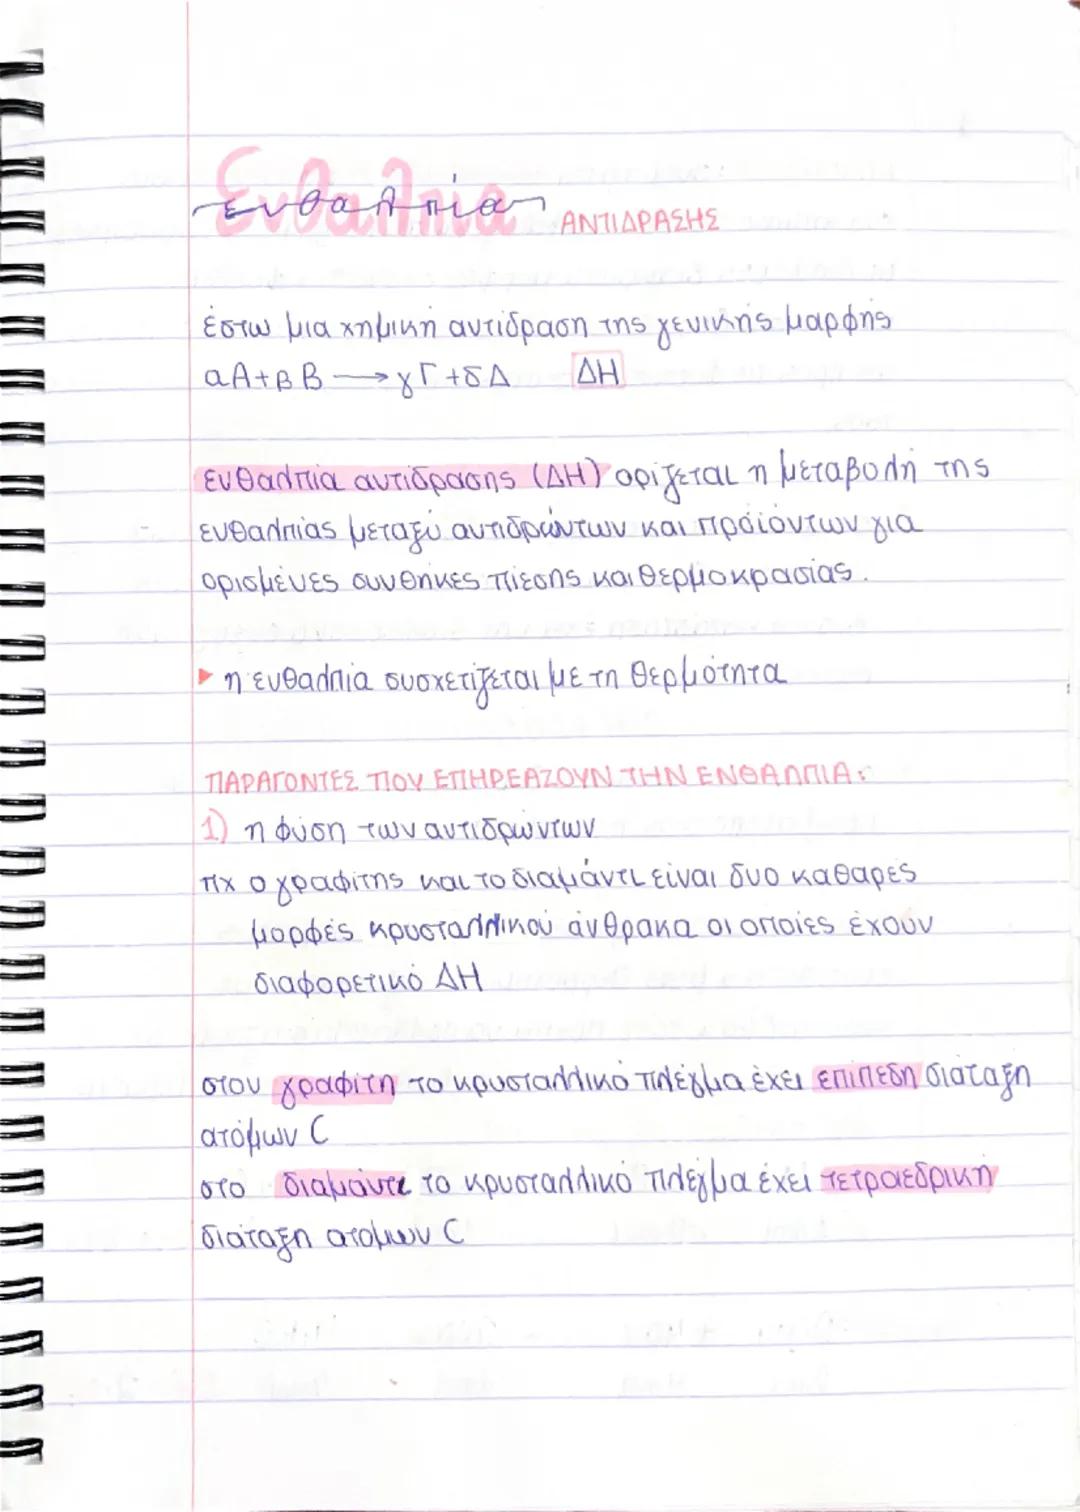 Ενθαλπία ΑΝΤΙΔΡΑΣΗΣ
έστω μια χημική αντίδραση της γενικής μαρφής
αΑ+βΒ → γΓ+δΔ ΔΗ
ενθαλπία αντίδρασης (ΔΗ) ορίζεται η μεταβολή της
ενθαλπίας μεταξύ αντιδρώντων και προϊόντων για
ορισμένες συνθήκες πίεσης και θερμοκρασίας.
▸ η ενθαλπία συσχετίζεται με τη θερμότητα
ΠΑΡΑΓΟΝΤΕΣ ΠΟΥ ΕΠΗΡΕΑΖΟΥΝ ΤΗΝ ΕΝΘΑΛΠΙΑ:
1) η φύση των αντιδρώντων
πχ ο γραφίτης και το διαμάντι είναι δυο καθαρές
μορφές κρυσταλλικού άνθρακα οι οποίες έχουν
διαφορετικό ΔΗ
στον γραφίτη το κρυσταλλικό πλέγμα έχει επίπεδη διάταξη
ατόμων C
στο διαμάντι το κρυσταλλικό πλέγμα έχει τετραεδρική
διάταξη ατόμων C